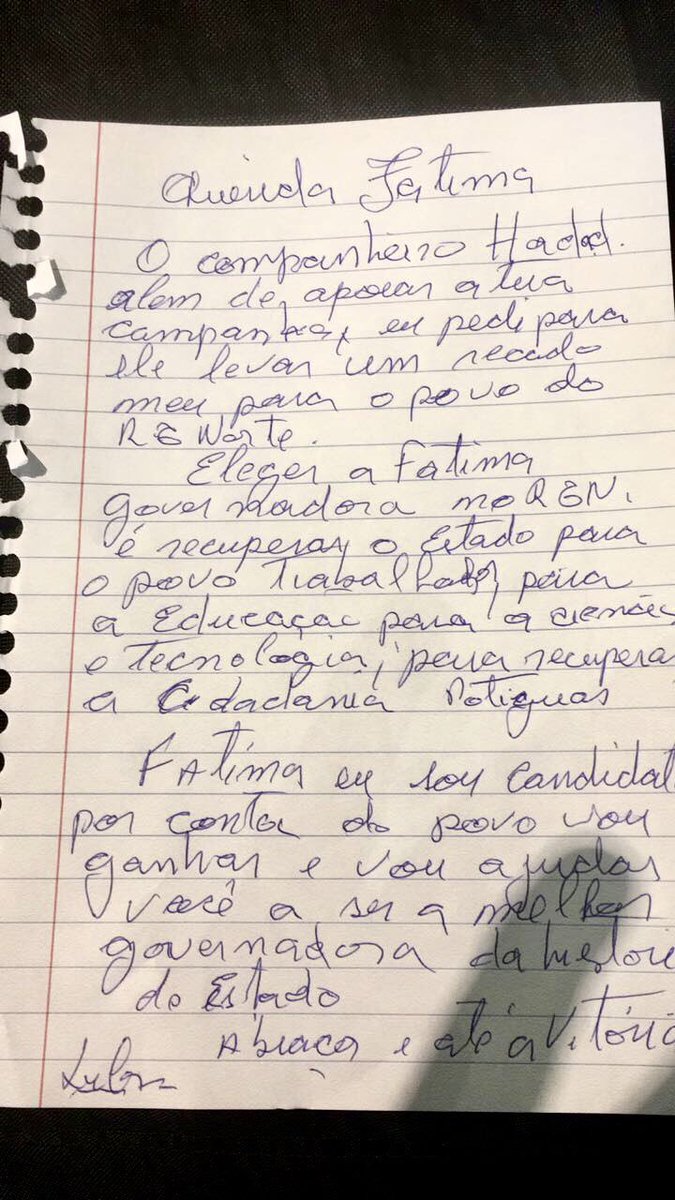 Querida Fatima
O companheiro Hadad.
alem de apoiar a tua
campanha, eu pedi para
ele levar um recado
meu para o povo do
RG Norte.
Eleger a Fatima
governadora no RGN.
é recuperar o Estado para
o povo trabalhador, para
a Educação para a ciencia
e tecnologia, para recupera
a Cidadania Potiguar
FATima eu sou candidat
por conta do povo vou
ganhar e vou ajudar
você a ser a melhor
governadora da histori
do Estado
Abraço e até a Vitória
Lula